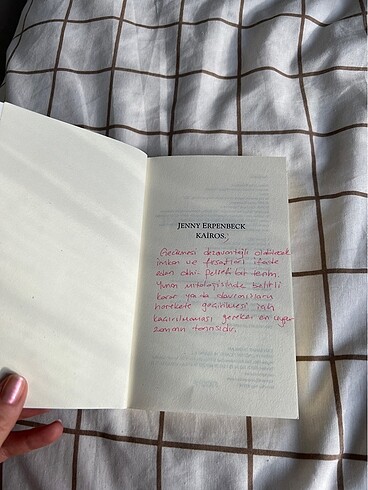 JENNY ERPENBECK
KAİROS.
Gecikmesi dezavantajlı olabilecek
imkan ve fırsatları ifade
eden bir terim.
Yunan mitolojisinde belirli
karar ya da davranışların
harekete geçirilmesi için
kaçırılmaması gereken en uygun
zaman tanrısıdır.